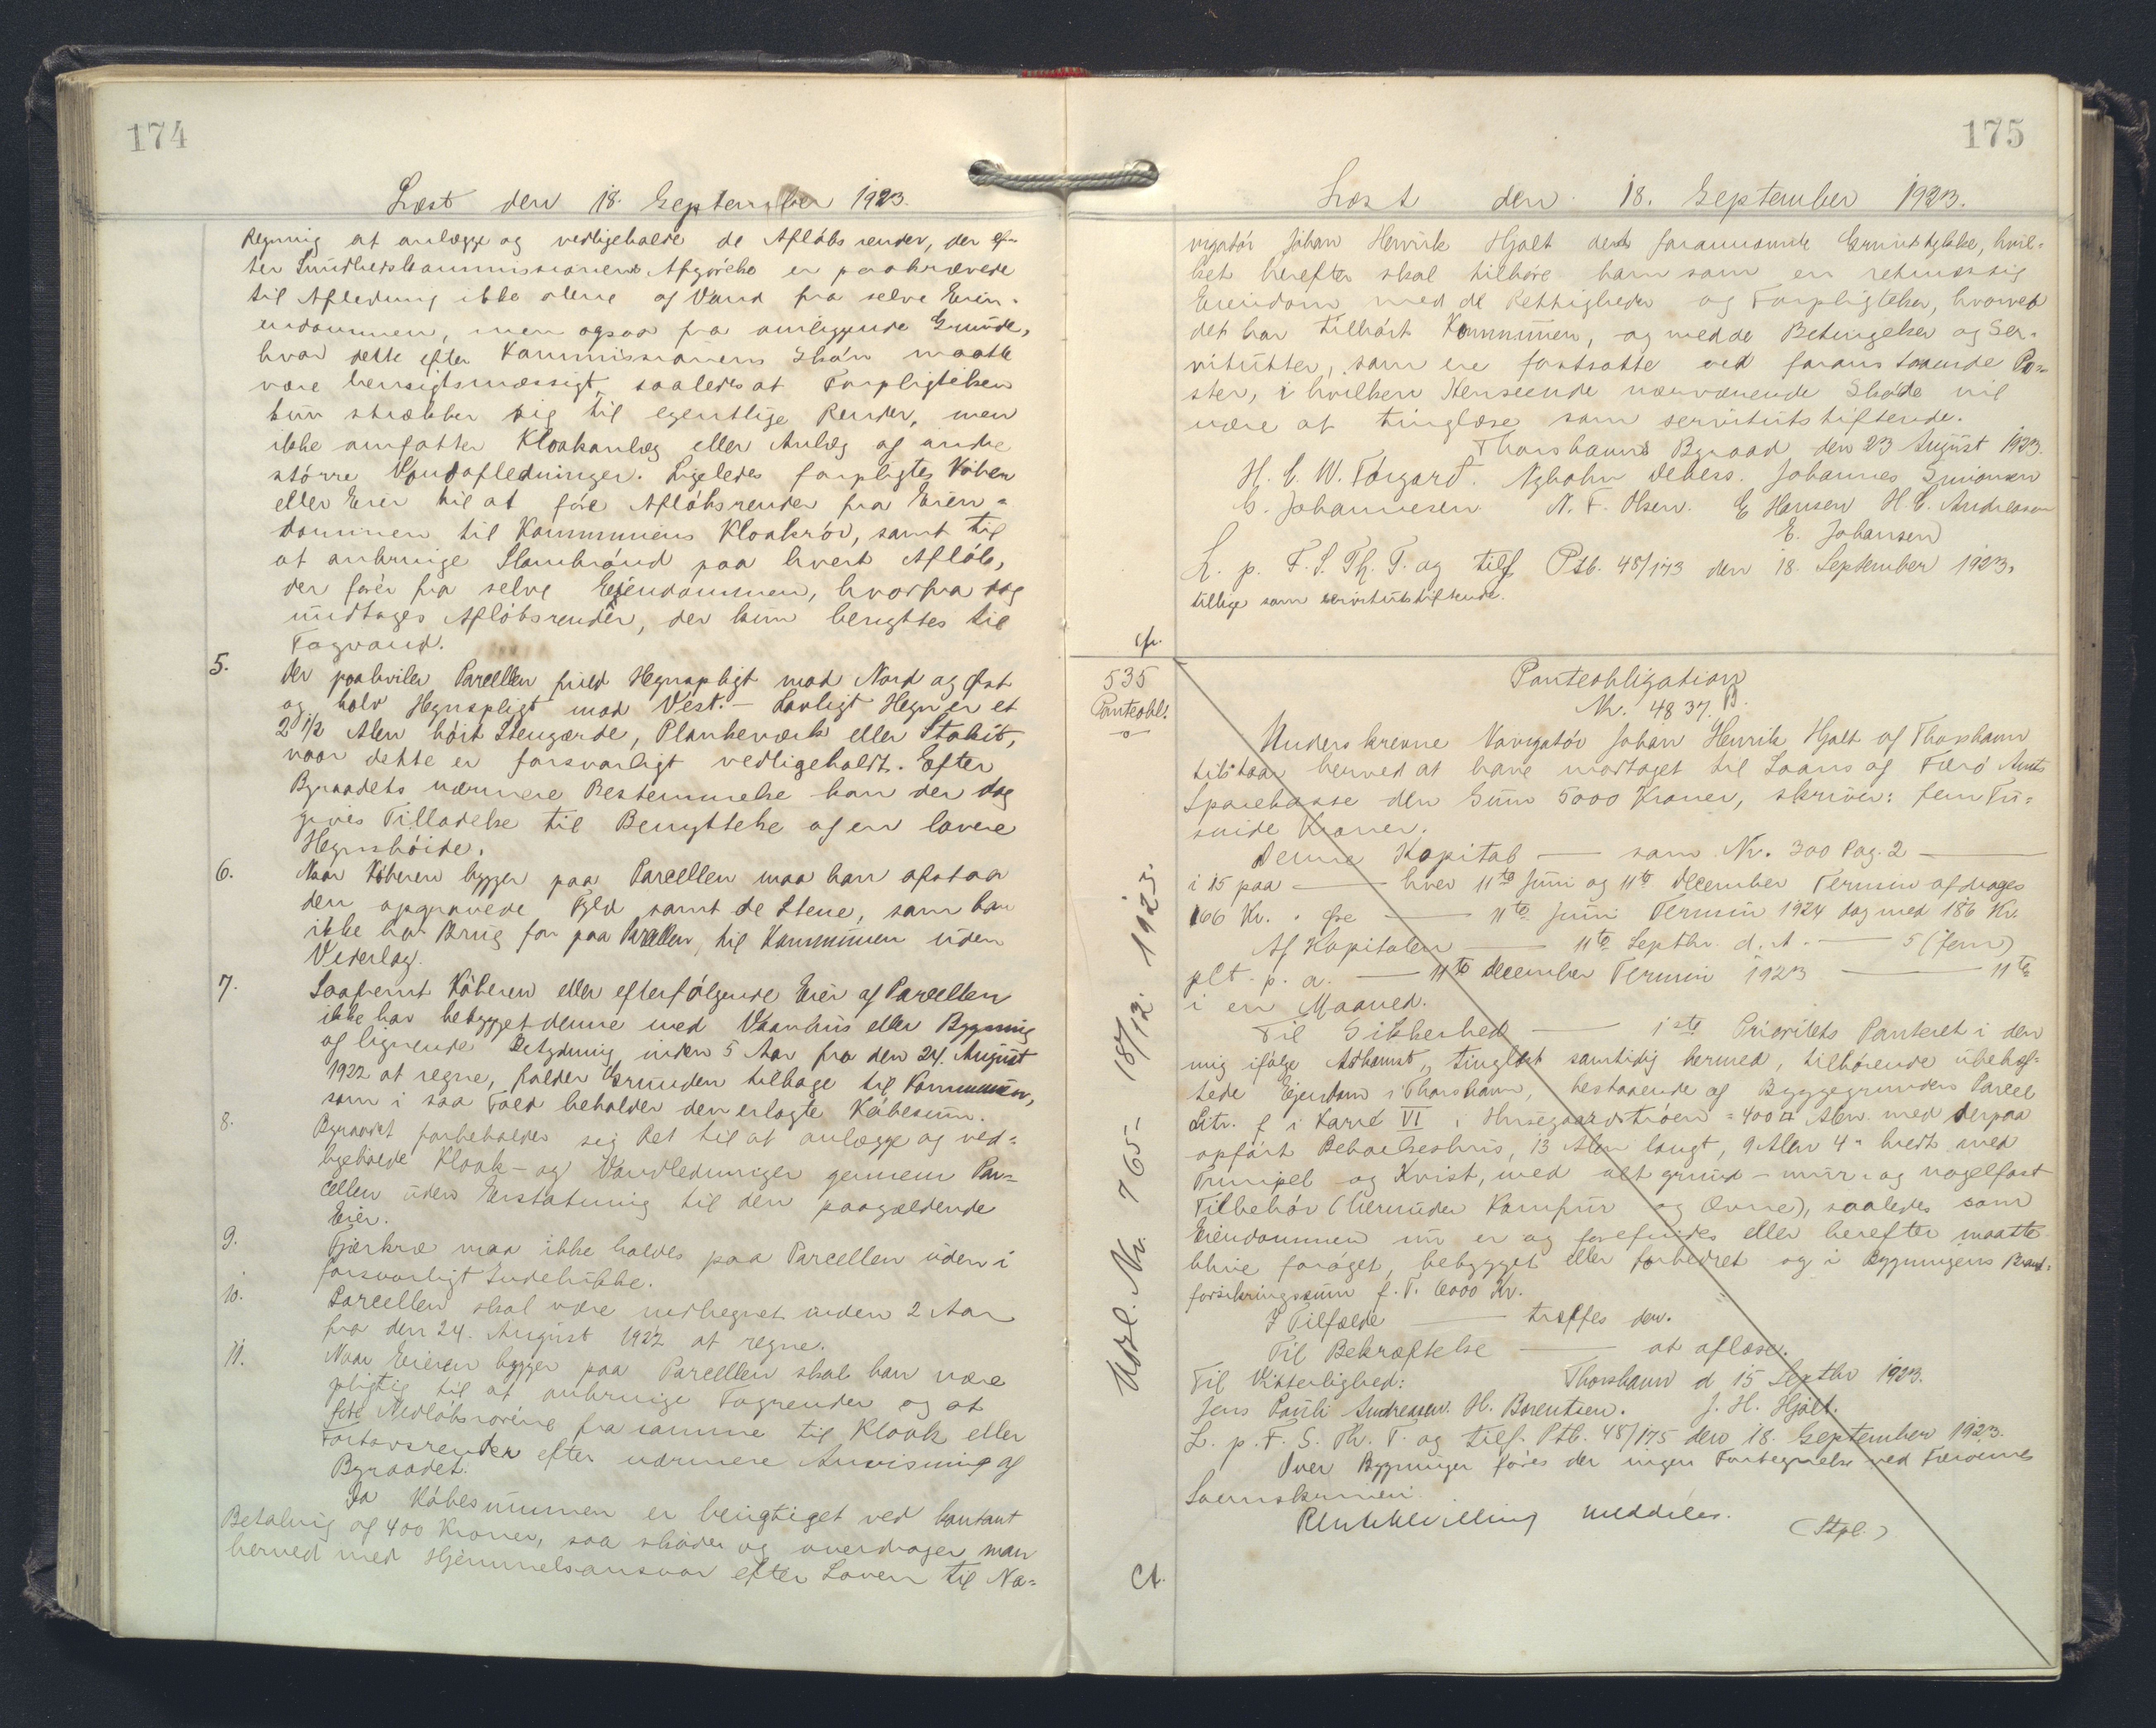 174
Læst den 18. September 1923.
Regning at anlægge og vedligeholde de Afløbsrender, der ef-
ter Sundhedskommissionens Afgørelse er paakrævede
til Afledning ikke alene af Vand fra selve Eien-
endommen, men ogsaa fra omliggende Grunde,
hvor dette efter Kommissionens Skøn maatte
være hensigtsmæssigt, saaledes at Forpligtelsen
kun strækker sig til egentlige Render, men
ikke omfatter Kloakanlæg eller Anlæg af andre
større Vandafledninger. Ligeledes forpligtes Køberen
eller Eier til at føre Afløbsrender fra Eien-
dommen til Kommunens Kloakrør, samt til
at anbringe Slambrønd paa hvert Afløb,
der fører fra selve Eiendommen, hvorfra dog
undtages Afløbsrender, der kun benyttes til
Tagvand.
5. Der paahviler Parcellen fuld Hegnspligt mod Nord og Øst
og halv Hegnspligt mod Vest. - Lovligt Hegn er et
2 1/2 Alen høit Stengærde, Plankeværk eller Stakit,
naar dette er forsvarligt vedligeholdt. Efter
Byraadets nærmere Bestemmelse kan der dog
gives Tilladelse til Benyttelse af en lavere
Hegnshøide.
6. Naar Køberen bygger paa Parcellen maa han afstaa
den opgravede Fyld samt de Stene, som han
ikke har Brug for paa Parcellen, til Kommunen uden
Vederlag.
7. Saafremt Køberen eller efterfølgende Eier af Parcellen
ikke har bebygget denne med Vaanhus eller Bygning
af lignende Betydning inden 5 Aar fra den 24. August
1922 at regne, falder Grunden tilbage til Kommunen,
som i saa Fald beholder den erlagte Købesum.
8. Byraadet forbeholder sig Ret til at anlægge og ved-
ligeholde Kloak- og Vandledninger gennem Par-
cellen uden Erstatning til den paagældende
Eier.
9. Fjerkræ maa ikke holdes paa Parcellen uden i
forsvarligt Indelukke.
10. Parcellen skal være indhegnet inden 2 Aar
fra den 24. August 1922 at regne.
11. Naar Eieren bygger paa Parcellen skal han være
pligtig til at anbringe Tagrender og at
føre Nedløbsrørene fra samme til Kloak eller
Fortovsrender efter nærmere Anvisning af
Byraadet.
Da Købesummen er berigtiget ved kontant
Betaling af 400 Kroner, saa skøder og overdrager man
herved med Hjemmelsansvar efter Loven til Na-
175
Læst den 18. September 1923.
vigatør Johan Henrik Hjalt det forannævnte Grundstykke, hvil-
ket herefter skal tilhøre ham som en retmæssig
Eiendom med de Rettigheder og Forpligtelser, hvorved
det har tilhørt Kommunen, og med de Betingelser og Ser-
vitutter, som ere fastsatte ved foranstaaende Po-
ster, i hvilken Henseende nærværende Skøde vil
være at tinglæse som servitutstiftende.
Thorshavns Byraad den 23 August 1923.
H. C. W. Tórgarð. Nybohn Debess. Johannes Simonsen
C. Johannesen N. F. Olsen. E Hansen H. C. Andreasen
E. Johansen
L. p. F. S. Th. T. og tilf. Ptb. 48/173 den 18. September 1923,
tillige som servitutstiftende.
cfr.
535
Panteobl.
Panteobligation
Nr. 4837 B.
Underskrevne Navigatør Johan Henrik Hjalt af Thorshavn
tilstaar herved at have modtaget til Laans af Færø Amts
Sparekasse den Sum 5000 Kroner, skriver: fem Tu-
sinde Kroner.
Denne Kapital — som Nr. 300 Pag. 2 —
i 15 paa — hver 11te Juni og 11te December Termin afdrages
166 Kr. " Øre — 11te Juni Termin 1924 dog med 186 Kr.
Af Kapitalen — 11te Septbr. d. A. — 5 (fem)
plt. p. a. — 11te December Termin 1923 — 11te
i en Maaned.
Til Sikkerhed — 1ste Prioritets Panteret i den
mig ifølge Adkomst, tinglæst samtidig hermed, tilhørende ubehæf-
tede Ejendom i Thorshavn, bestaaende af Byggegrunden Parcel
Litr. f i Karré VI i Husegaardstrøen = 400 □ Alen med derpaa
opført Beboelseshus, 13 Alen langt, 9 Alen 4" bredt med
Trempel og Kvist, med alt grund- mur- og nagelfast
Tilbehør (herunder Komfur og Ovne), saaledes som
Eiendommen nu er og forefindes eller herefter maatte
blive forøget, bebygget eller forbedret og i Bygningens Brand-
forsikringssum p. T. 6000 Kr.
I Tilfælde — træffes den.
Til Bekræftelse — at aflæse.
Til Vitterlighed: Thorshavn d 15 Septbr 1923.
Jens Pauli Andreasen. H. Berentsen. J. H. Hjalt.
L. p. F. S. Th. T. og tilf. Ptb. 48/175 den 18. September 1923.
Over Bygninger føres der ingen Fortegnelse ved Færøernes
Sorenskriveri.
Rentekvittering meddeles. (Stpl.)
Udsl. Nr. 765- 18/12. 1925.
Ct.